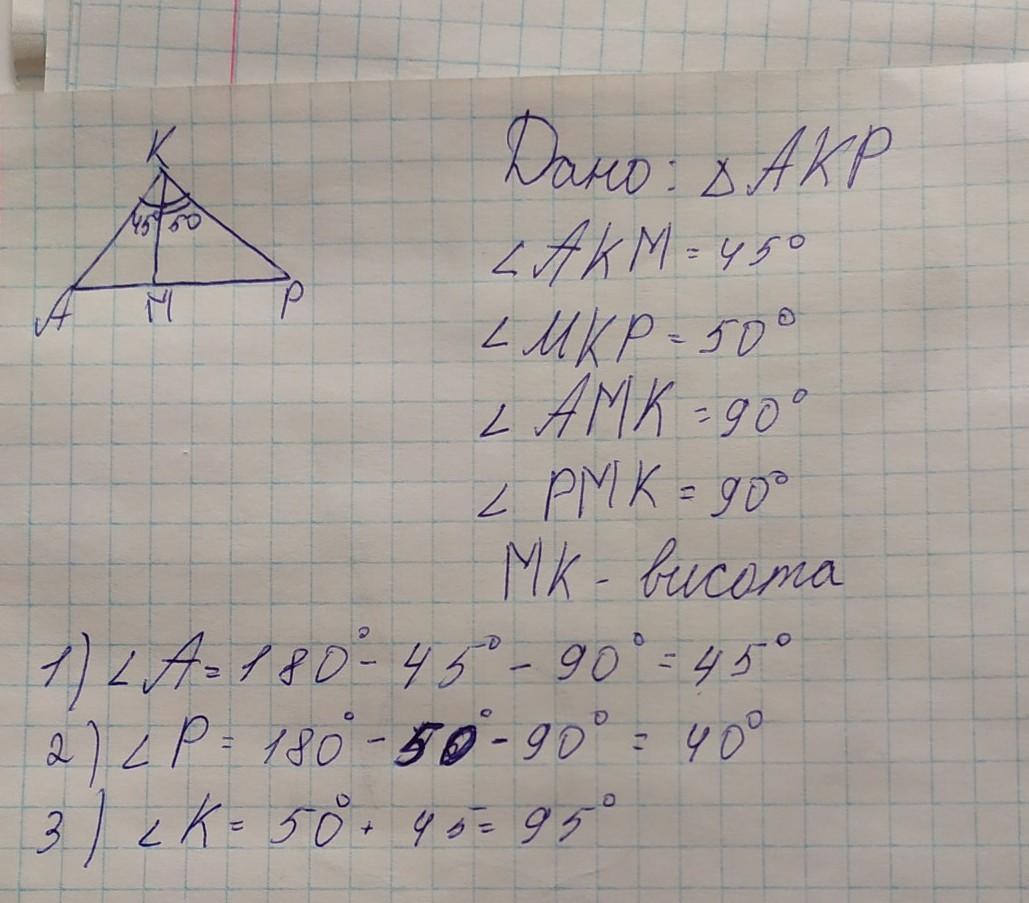 K
45° 50
A M P
Дано: △AKP
∠AKM = 45°
∠MKP = 50°
∠AMK = 90°
∠PMK = 90°
MK - висота
1) ∠A = 180° - 45° - 90° = 45°
2) ∠P = 180° - 50° - 90° = 40°
3) ∠K = 50° + 45 = 95°